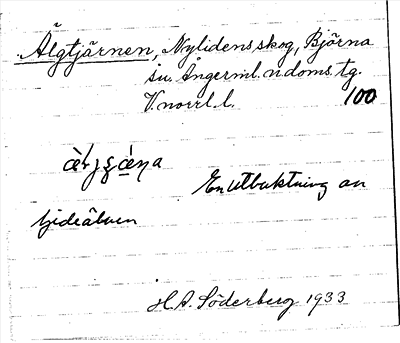 Älgtjärnen, Nylidens skog, Björna
sn. Ångerml. n doms. tg.
V. norrl. l. 100
En utbuktning av
Gideälven
H. A. Söderberg 1933